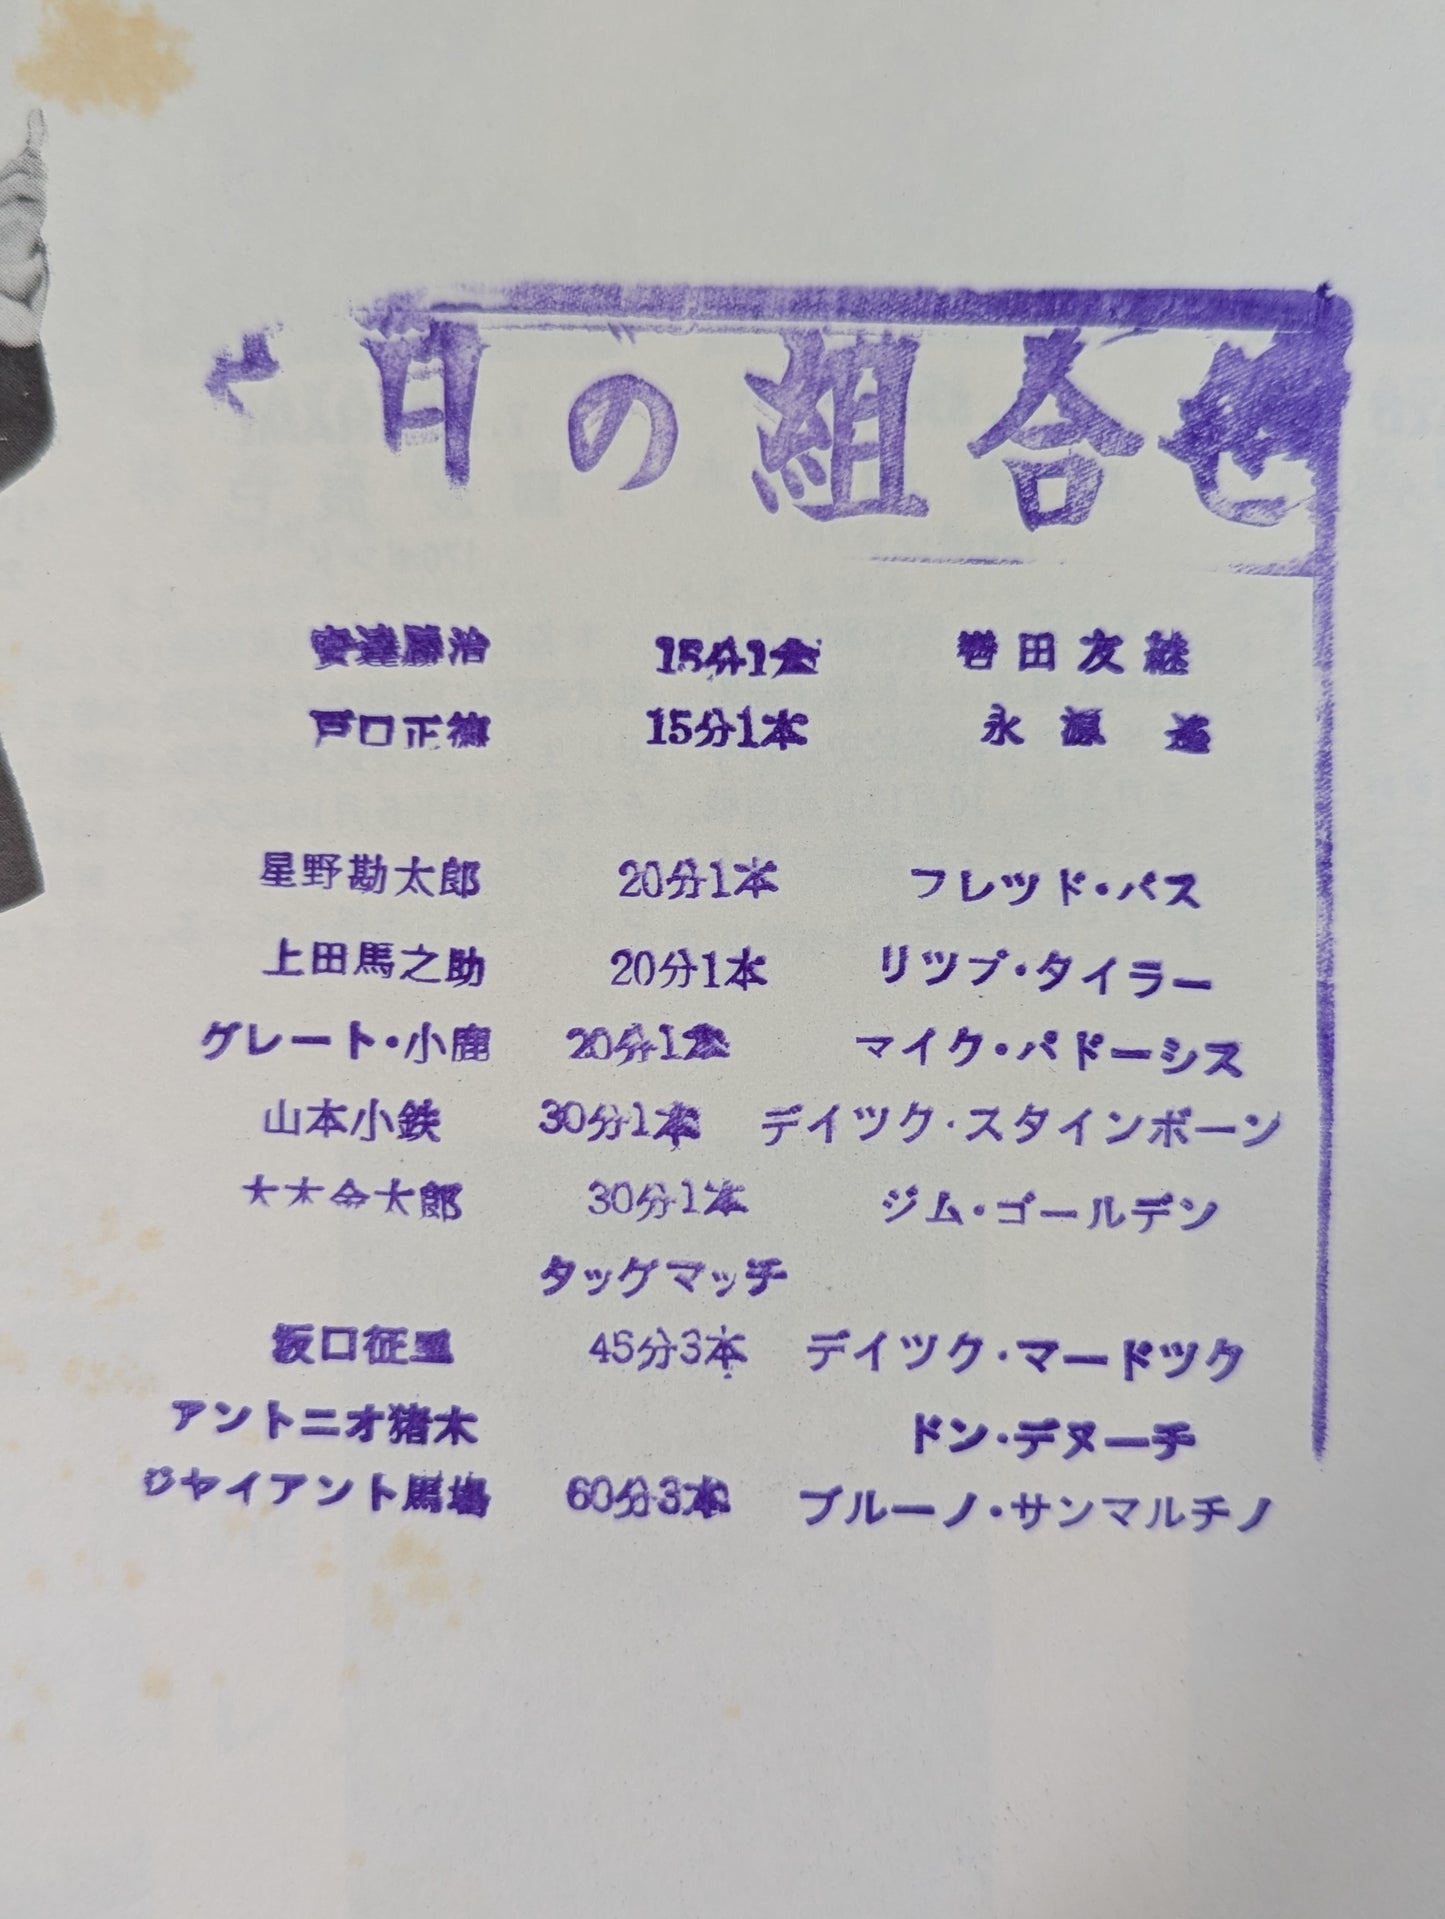 日の組合せ
安達勝治 15分1本 轡田友継
戸口正徳 15分1本 永源遙
星野勘太郎 20分1本 フレツド・バス
上田馬之助 20分1本 リツプ・タイラー
グレート・小鹿 20分1本 マイク・パドーシス
山本小鉄 30分1本 デイツク・スタインボーン
大木金太郎 30分1本 ジム・ゴールデン
タッグマッチ
坂口征二 45分3本 デイツク・マードツク
アントニオ猪木 ドン・デヌーチ
ジャイアント馬場 60分3本 ブルーノ・サンマルチノ